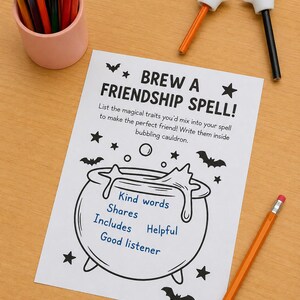 BREW A
FRIENDSHIP SPELL!
List the magical traits you'd mix into your spell
to make the perfect friend! Write them inside
bubbling cauldron.
Kind words
Shares
Includes Helpful
Good listener